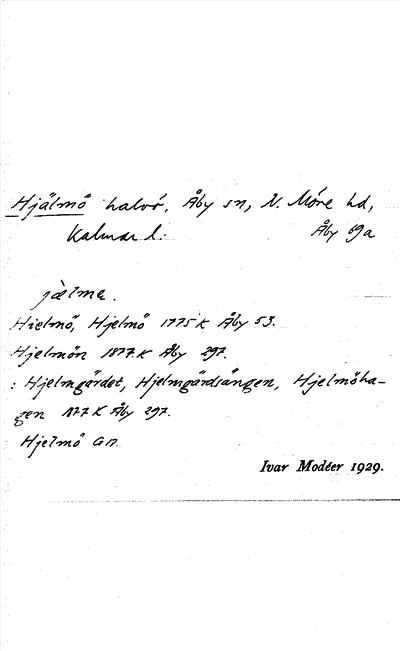 Hjälmö halvö, Åby sn, N. Möre hd,
Kalmar l. Åby 69a
jælma.
Hielmö, Hjelmö 1775 K Åby 53.
Hjelmön 1877 K Åby 297.
: Hjelmgärdet, Hjelmgärdsängen, Hjelmöha-
gen 1877 K Åby 297.
Hjelmö GN
Ivar Modéer 1929.